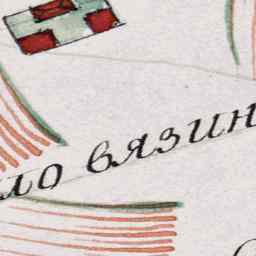 ло вязин